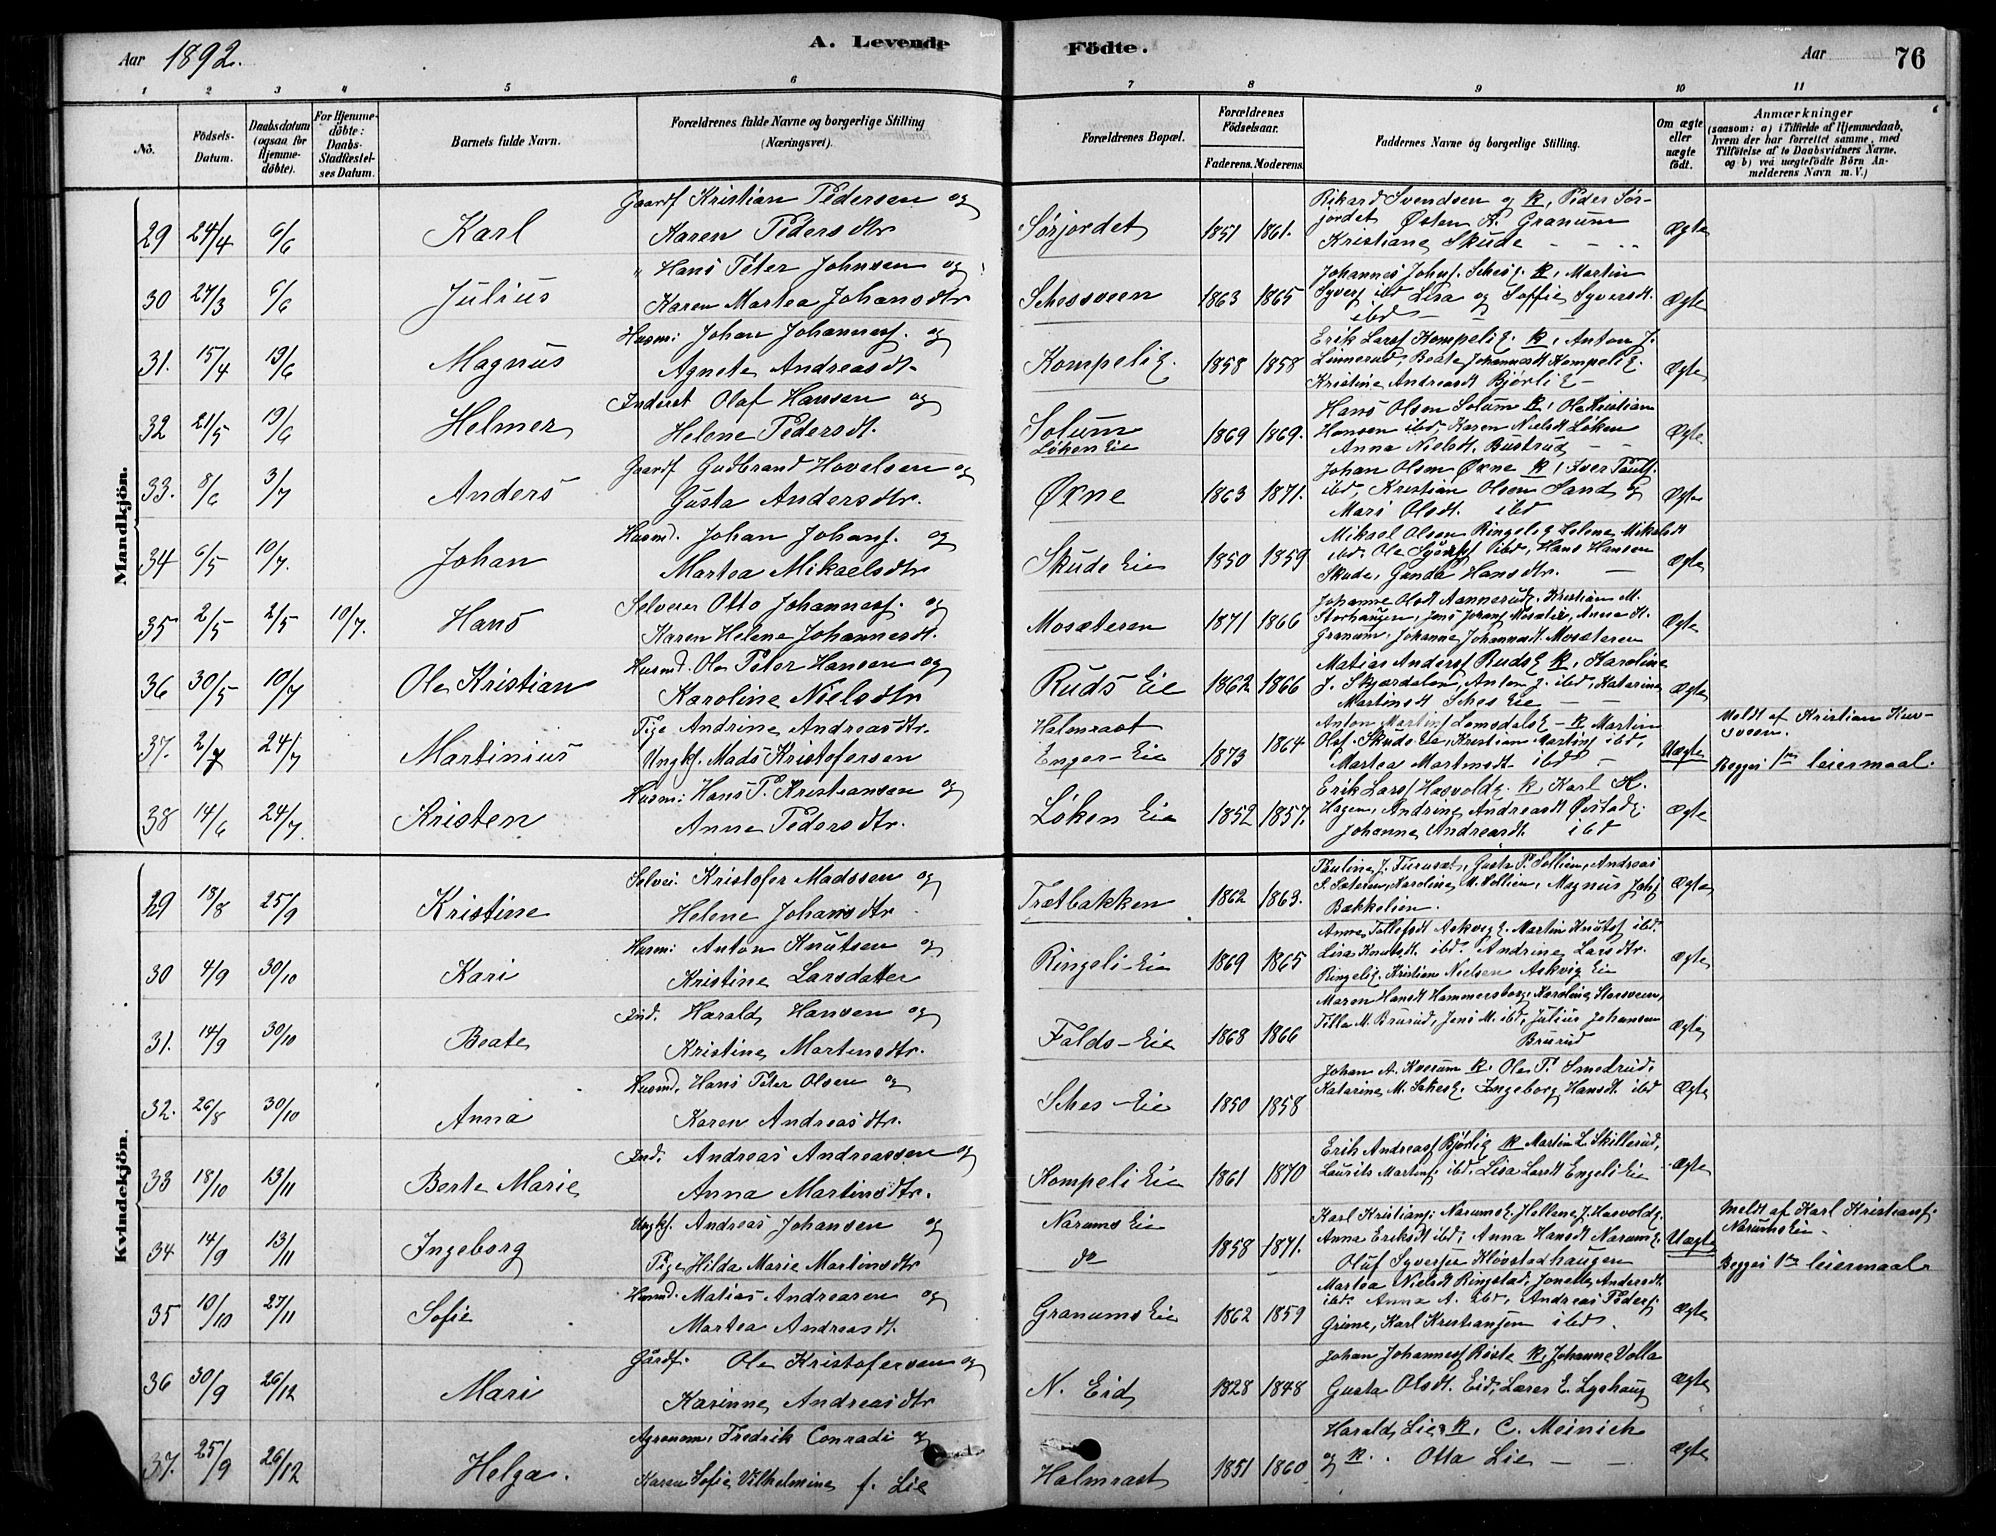 Aar 1892.
A. Levende Födte.
Aar 76
1 2 3 4 5 6 7 8 9 10 11
No.
Födsels-Datum.
Daabsdatum (ogsaa for Hjemme-døbte).
For Hjemme-døbte: Daabs-Stadfæstel-ses Datum.
Barnets fulde Navn.
Forældrenes fulde Navne og borgerlige Stilling (Næringsvei).
Forældrenes Bopæl.
Forældrenes Födselsaar.
Faderens. Moderens.
Faddernes Navne og borgerlige Stilling.
Om ægte eller uægte født.
Anmærkninger
(saasom: a) i Tilfælde af Hjemmedaab, hvem der har forrettet samme, med Tilføielse af to Daabsvidners Navne, og b) ved uegtefödte Börn An-melderens Navn m. V.)
Mandkjön.
29 24/4 6/6 Karl
Gaardf Kristian Pedersen og
Karen Pedersdtr
Sørjordet 1851 1861.
Rikard Svendsen og k, Peder Sør-
jordet Østen A. Granum
Kristiane Skude
Ægte
30 27/3 6/6 Julius
" Hans Peter Johnsen og
Karen Martea Johansdtr
Schesveen 1863 1865
Johannes Johns. k, Martin
Syvers ibd Lisa og Soffie Syversdt.
ibd
Ægte
31. 15/4 19/6 Magnus
Husm: Johan Johannesf. og
Agnete Andreasdt.
Kompelig. 1858 1858
Erik Larsf Kompelig. k, Anton J.
Linnerud, Beate Johannesdt Kompelig.
Kristine Andreasdt Bjørlig
Ægte
32 21/5 19/6 Helmer
Inderst Olaf Hansen og
Helene Pedersdt.
Solum
Løken Eie 1869 1869.
Hans Olsen Solum k, Ole Kristian
Hansen ibd, Karen Nielsdt Løken
Anna Nielsdt. Bustrud
Ægte
33. 8/6 3/7 Anders
Gaardf Gudbrand Hovelsen og
Gusta Andersdtr.
Øxne 1863 1871.
Johan Olsen Øxne k, Iver Paulf.
ibd, Kristian Olsen Sand og
Mari Olsdt. ibd
Ægte
34 6/5 10/7. Johan
Husmd. Johan Johansf. og
Martea Mikaelsdtr
Skude Eie 1850 1859
Mikael Olsen Ringelig Helene Mikelsdt
ibd. Ole ibd, Hans Hansen
Skude, Gunda Hansdtr.
Ægte
35 2/5 2/5 10/7. Hans
Selveier Otto Johannesf. og
Karen Helene Johannesdt.
Mosæteren 1871 1866
Johanne Olsdt Aannerudg. Kristian M.
Storhaugen, Jens Johansf Mosæter, Anne H.
Granum, Johanne Johannesdt. Mosæteren
Ægte
36 30/5 10/7 Ole Kristian
Husmd. Ole Peter Hansen og
Karoline Nielsdtr
Ruds Eie 1862 1866
Matias Andersf Rudsg k, Karoline
J. Skjærdalen, Anton J. ibd, Katarine
Martinsdt Sches Eie
Ægte
37. 2/7 24/7 Martinius
Pige Andrine Andreasdtr.
Ungkf. Mads Kristofersen
Halmrast
Enger Eie 1873 1864
Anton Martinf Lomsdalsg k Martin
Olsf. Skude Eie, Kristian Martinf ibd,
Martea Martinsdt ibd
Uægte
Meldt af Kristian
sveen.
Begges 1ste leiermaal.
38 14/6 24/7. Kristen
Husm: Hans P. Kristiansen og
Anne Pedersdtr.
Løken Eie 1852 1857.
Erik Larsf Hasvoldg. k, Karl K.
Hagen, Andrine Andreasdt Øistadg
Johanne Andreasdt. ibd
Ægte
Kvindekjön.
29 18/8 25/9 Kristine
Selvei: Kristofer Madssen og
Helene Johansdtr.
Trætbakken 1862 1863.
Pauline J. Furuset, Gusta P. Sollien, Andreas
S. Sæteren, Karoline M. Vollien, Magnus Johsf
Bakkelien.
Ægte
30 4/9 30/10 Kari
Husm: Anton Knutsen og
Kristine Larsdatter
Ringeli Eie 1869 1865
Anne Tollefsdt Askvigg. Martin Knutsf ibd.
Lisa Knutsdt. ibd. Andrine Larsdtr.
Ringelig. Kristian Nielsen Askvig Eie
Ægte
31. 14/9 30/10 Beate
Ind. Harald Hansen og
Kristine Martinsdtr.
Falds Eie 1868 1866
Maren Hansdt Hammersborg, Karoline Storsveen,
Tilla M. Brurud, Jens M. ibd, Julius Johansen
Brurud
Ægte
32. 26/8 30/10 Anna
Husmd. Hans Peter Olsen og
Karen Andreasdtr.
Sches Eie 1850 1858
Johan A. Kverum k. Ole P. Smedrud,
Katarine M. Ingeborg Hansdt. ibd
Ægte
33 18/10 13/11 Berte Marie
Ind. Andreas Andreassen og
Anna Martinsdtr.
Kompeli Eie 1861 1870
Erik Andreasf Bjørlig k Martin L. Skillerud,
Laurits Martinf. ibd. Lisa Larsdt Engeli Eie
Ægte
34 14/9 13/11 Ingeborg
Ungkf. Andreas Johansen og
Pige Hilda Marie Martinsdtr
Narums Eie
do 1858 1871.
Karl Kristiansf. Narumsg. Hellene J. Hasvoldg.
Anna Eriksdt ibd, Anna Hansdt Narumg.
Oluf Syversen Kløvstadhaugen
Uægte
Meldt af Karl Kristiansf.
Narums Eie
Begges 1ste leiermaal.
35 10/10 27/11 Sofie
Husmd. Matias Andreasen og
Martea Andreasdt.
Granums Eie 1862 1859
Martea Nielsdt Ringstad, Jonette Andersdt.
ibd. Anna A. ibd, Andreas Pedersf.
Grime, Karl Kristiansen ibd.
Ægte
36 30/9 26/12 Mari
Gårdf. Ole Kristofersen og
Karinne Andreasdtr
N. Eid 1828 1848
Johan Johannesf Røste k, Johanne Volla
Gusta Olsdt. Eid, Lærer E. Lyshaug
Ægte
37. 25/9 26/12 Helga.
Agronom, Fredrik Conradi og
Karen Sofie Vilhelmine f. Lie
Halmrast 1851 1860
Harald Lie k, C. Meinich
og k. Otta Lie
Ægte